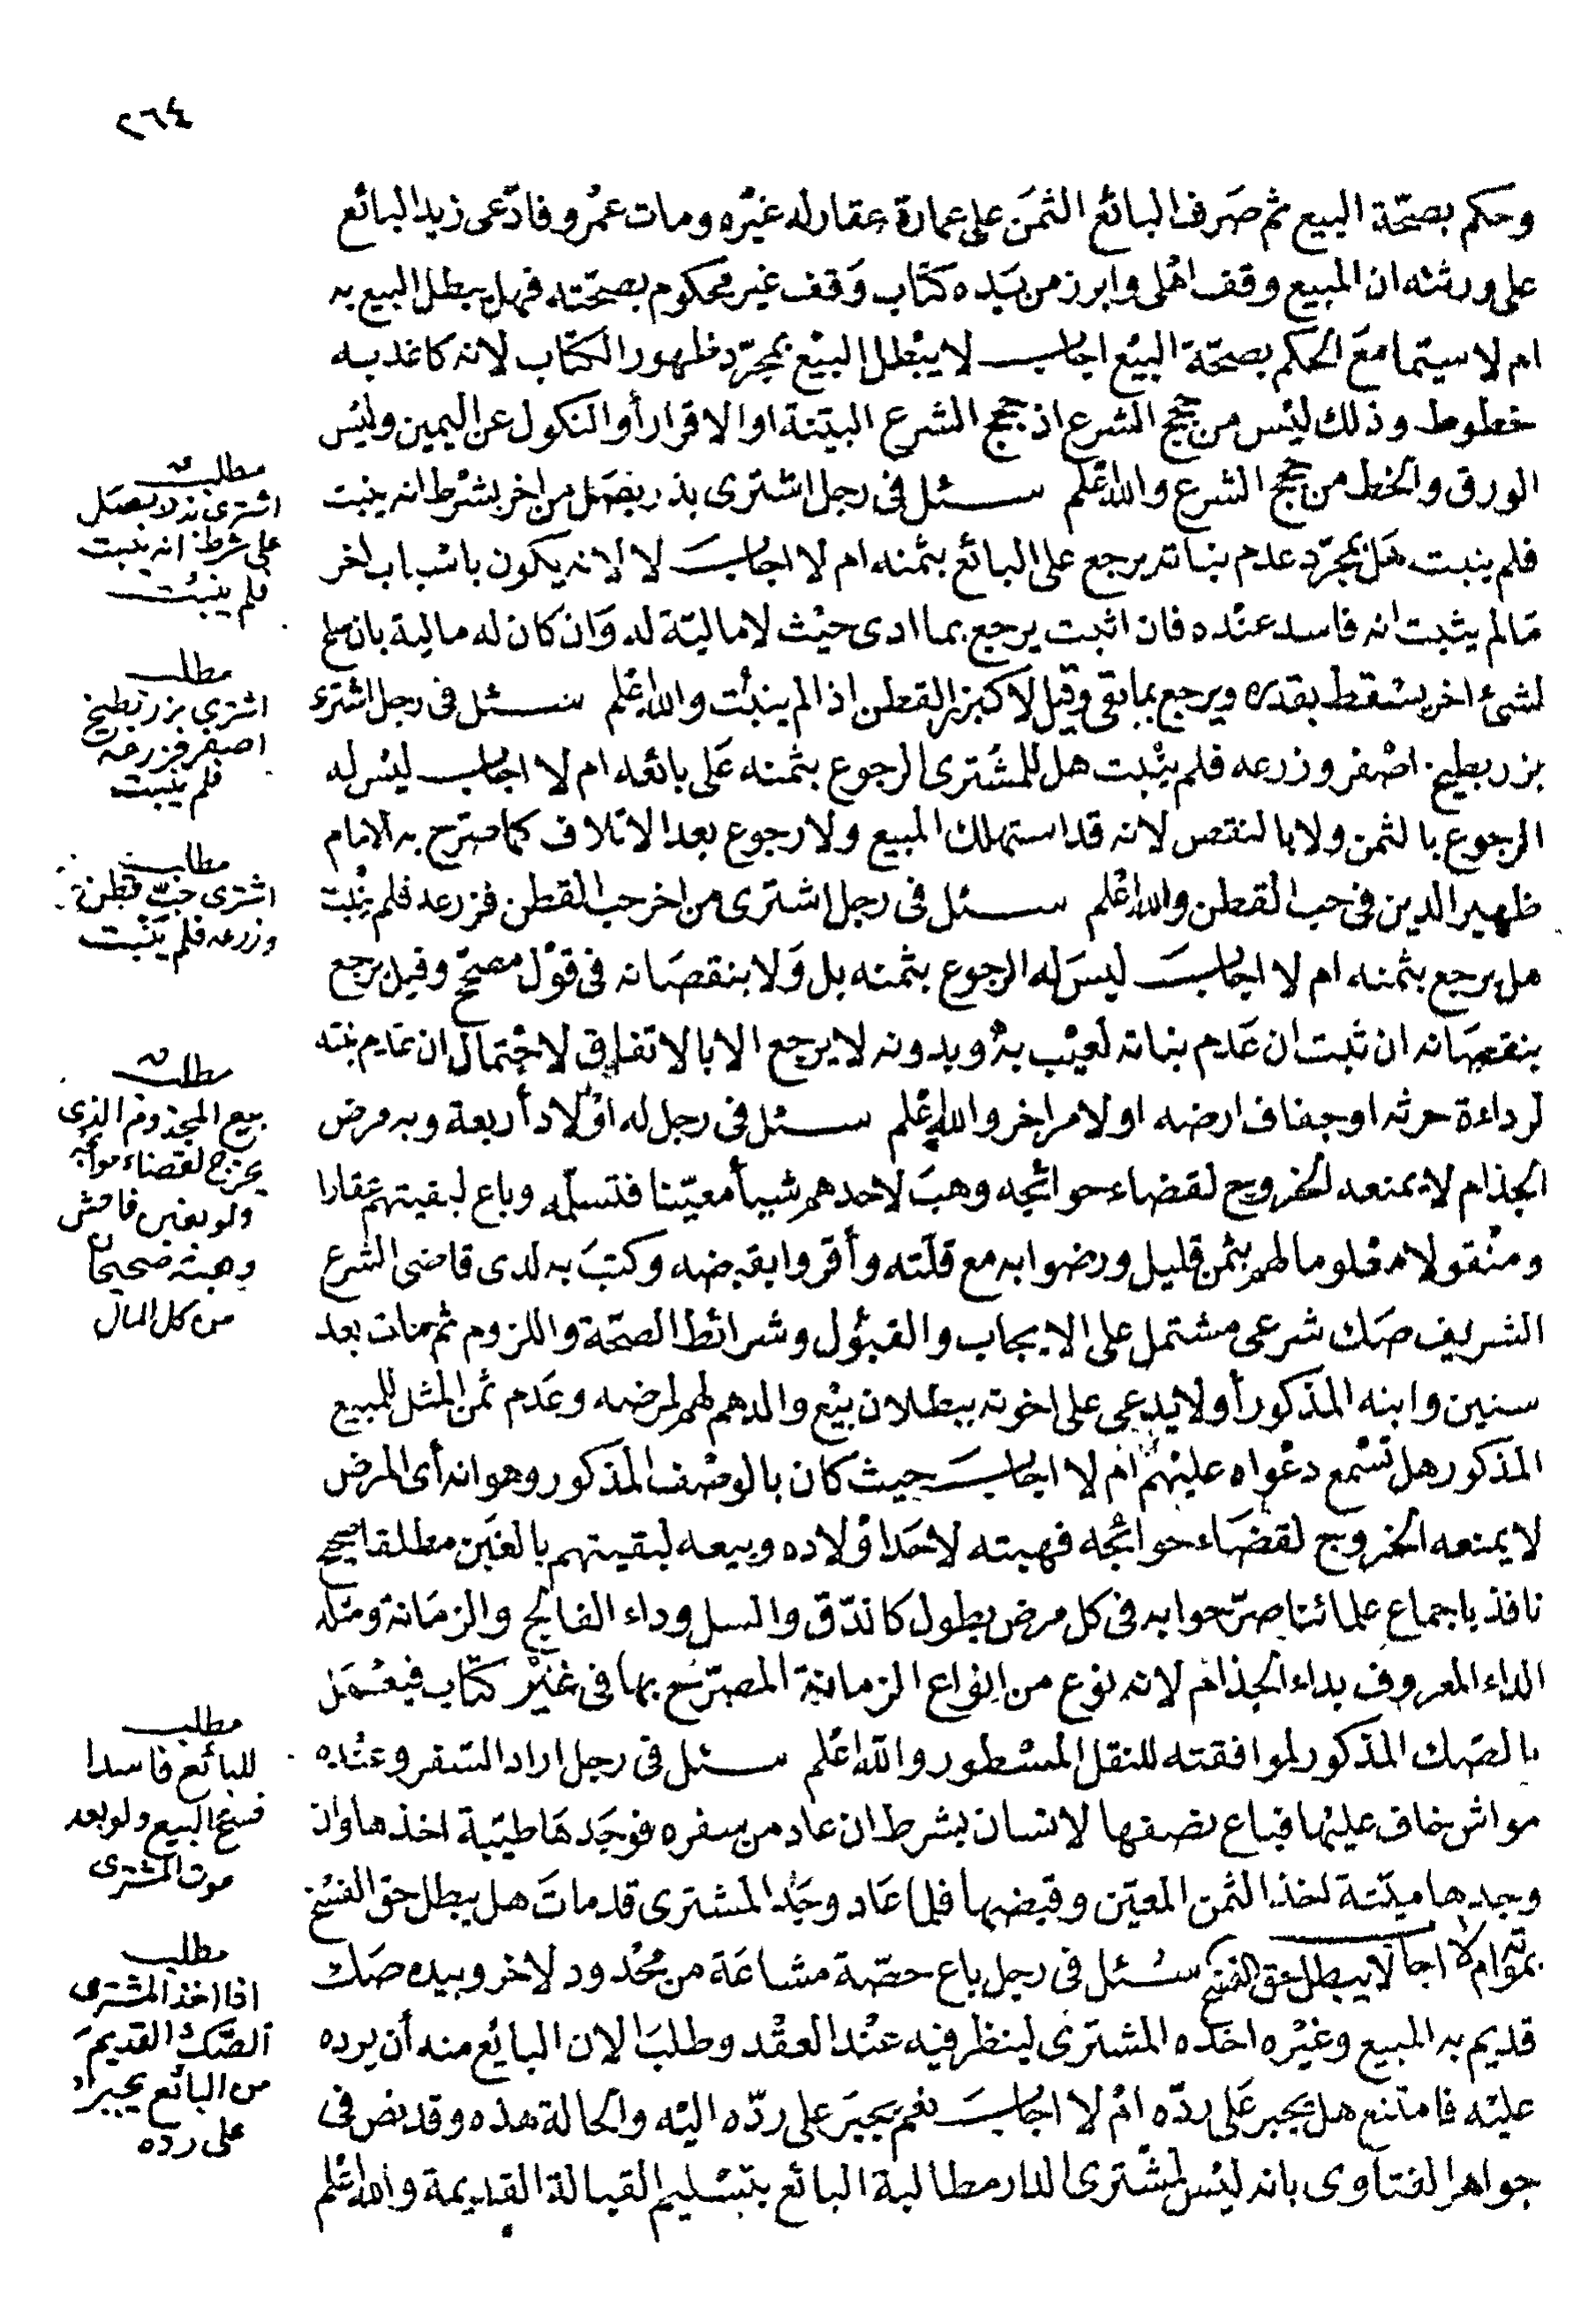 ٢٦٤
وحكم بصحّة البيع ثم صَرف البائع الثمَن على عمارة عقار له غيْره ومات عمْرو فادّعى زيد البائع
على ورثته ان المبيع وقف اهْلى وابرز من يَده كتَاب وَقف غير محْكوم بصحّته فهل يبطل البيع به
ام لا سيّما مَع الحكم بصحّة البيْع اجاب لا يبْطل البيْع بمجرّد ظهور الكتَاب لانه كاغد به
خطوط وذلك ليْس من حجج الشرع اذ حجج الشرع البيّنة او الاقرار أو النكول عن اليمين وليْس
الورق والخط من حجج الشرع والله اعْلم سئل فى رجل اشترى بذر بصَل من اخر بشرْط انه ينبت
فلم ينبت هَل بمجرّد عدم نباته يرجع على البائع بثمنه ام لا اجاب لا لانه يكون باسْباب اخر
مَا لم يثبت انه فاسد عنْده فان اثبت يرجع بما ادى حيْث لا ماليّة له وَان كان له مالية بان صلح
لشئ اخر يسْقط بقدَره ويرجع بما بقى وقيل لا كبزر القطن اذا لم ينبُت والله اعْلم سئل فى رجل اشترى
بزر بطيخ اصْفر وزرعه فلم ينْبت هل للمشترى الرجوع بثمنه عَلى بائعه ام لا اجاب ليْس له
الرجوع بالثمن ولا بالنقص لانه قد استهلك المبيع ولا رجوع بعد الاتلاف كما صرّح به الامام
ظهير الدين فى حب القطن والله اعْلم سئل فى رجل اشترَى من اخر حب القطن فزرعه فلم ينْبت
هل يرجع بثمنه ام لا اجاب ليسَ له الرجوع بثمنه بل وَلا بنقصَانه فى قوْل مصحّح وقيل يرجع
بنقصَانه ان ثبت ان عَدم نباته لعيْب به وبدونه لا يرجع الا بالاتفاق لاحْتمال ان عَدم نبته
لرداءة حرثه او جفاف ارضه او لامر اخر والله اعْلم سئل فى رجل له اوْلاد أربعة وبه مرض
الجذام لا يمنعه الخروج لقضاء حوائجه وهبَ لاحدهم شيأ معيّنا فتسلّمه وباع لبقيتهم عَقارا
ومنْقولا معْلوما لهم بثمن قليل ورضوا به مع قلّته وأقروا بقبضه وكتبَ به لدى قاضى الشرع
الشريف صَك شرعى مشتمل على الايجاب والقبوُل وشرائط الصحّة واللزوم ثم مَات بعد
سنين وابنه المذكور أولا يدعى على اخوته ببطلان بيْع والدهم لهم لمرضه وعَدم ثمن المثل للمبيع
المذكور هل تسْمع دعْواه عليْهم ام لا اجاب حيث كان بالوصْف المذكور وهو انه أى المرض
لا يمنعه الخروج لقضَاء حوائجه فهبته لاحَد اوْلاده وبيعه لبقيتهم بالغبَن مطلقا صحيح
نافذ باجماع علمائنا صرّحوا به فى كل مرض يطول كالدّق والسل وداء الفالج والزمَانة ومثله
الداء المعروف بداء الجذام لانه نوع من انواع الزمانة المصرّح بها فى غيْر كتَاب فيعْمَل
بالصَك المذكور لموافقته للنقل المسْطور والله اعْلم سئل فى رجل اراد السّفر وعنْده
مواش خاف عليْها فباع نصفها لانسان بشرط ان عاد من سفره فوجَدهَا طيّبة اخذها وان
وجدها ميّتة اخذ الثمن المعيّن وقبضها فلما عَاد وجَد المشترى قد ماتَ هل يبطل حق الفسْخ
بموته ام لا اجاب لا يبطل حق الفسخ سئل فى رجل باع حصّة مشاعَة من محْدود لاخر وبيده صَك
قديم به المبيع وغيْره اخذه المشترى لينظر فيه عنْد العقْد وطلبَ الان البائع منه أن يرده
عليْه فامتنع هل يجبر عَلى ردّه امْ لا اجابَ نعم يجبَر على ردّه اليْه والحالة هذه وقد نص فى
جواهر الفتاوى بانه ليْس لمشْترى الدار مطالبة البائع بتسْليم القبالة القديمة والله اعْلم
مطلب
اشترى بذر بصَل
على شرط انه ينبت
فلم ينبُت
مطلب
اشترى بزر بطيخ
اصفر فزرعه
فلم ينبت
مطلب
اشترى حَبّ قطن
وزرعه فلم يَنْبت
مطلب
بيع المجذوم الذى
يخرج لقضاء حوائجه
ولو بغبن فاحش
وهبته صحيحان
من كل المال
مطلب
للبائع فاسدا
فسخ البيع ولو بعد
موت المشترى
مطلب
اذا اخذ المشترى
الصّك القديمَ
من البائع يجبر
على ردّه